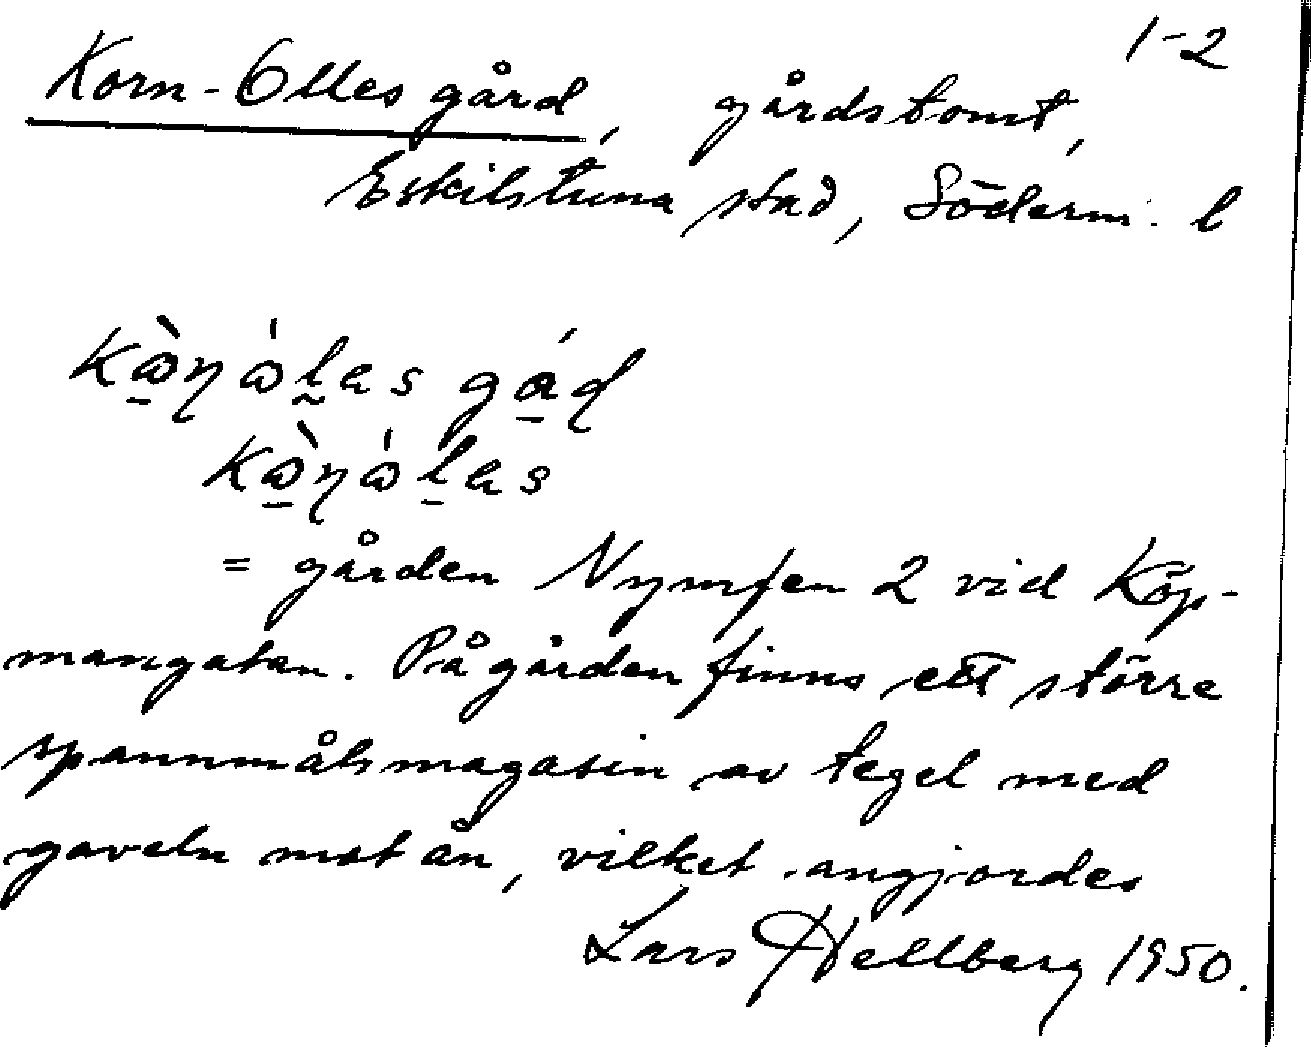 1-2
Korn-Olles gård, gårdstomt,
Eskilstuna stad, Söderm. l
= gården Nymfen 2 vid Köp-
mangatan. På gården finns ett större
spannmålsmagasin av tegel med
gaveln mot ån, vilket angjordes
Lars Hellberg 1950.